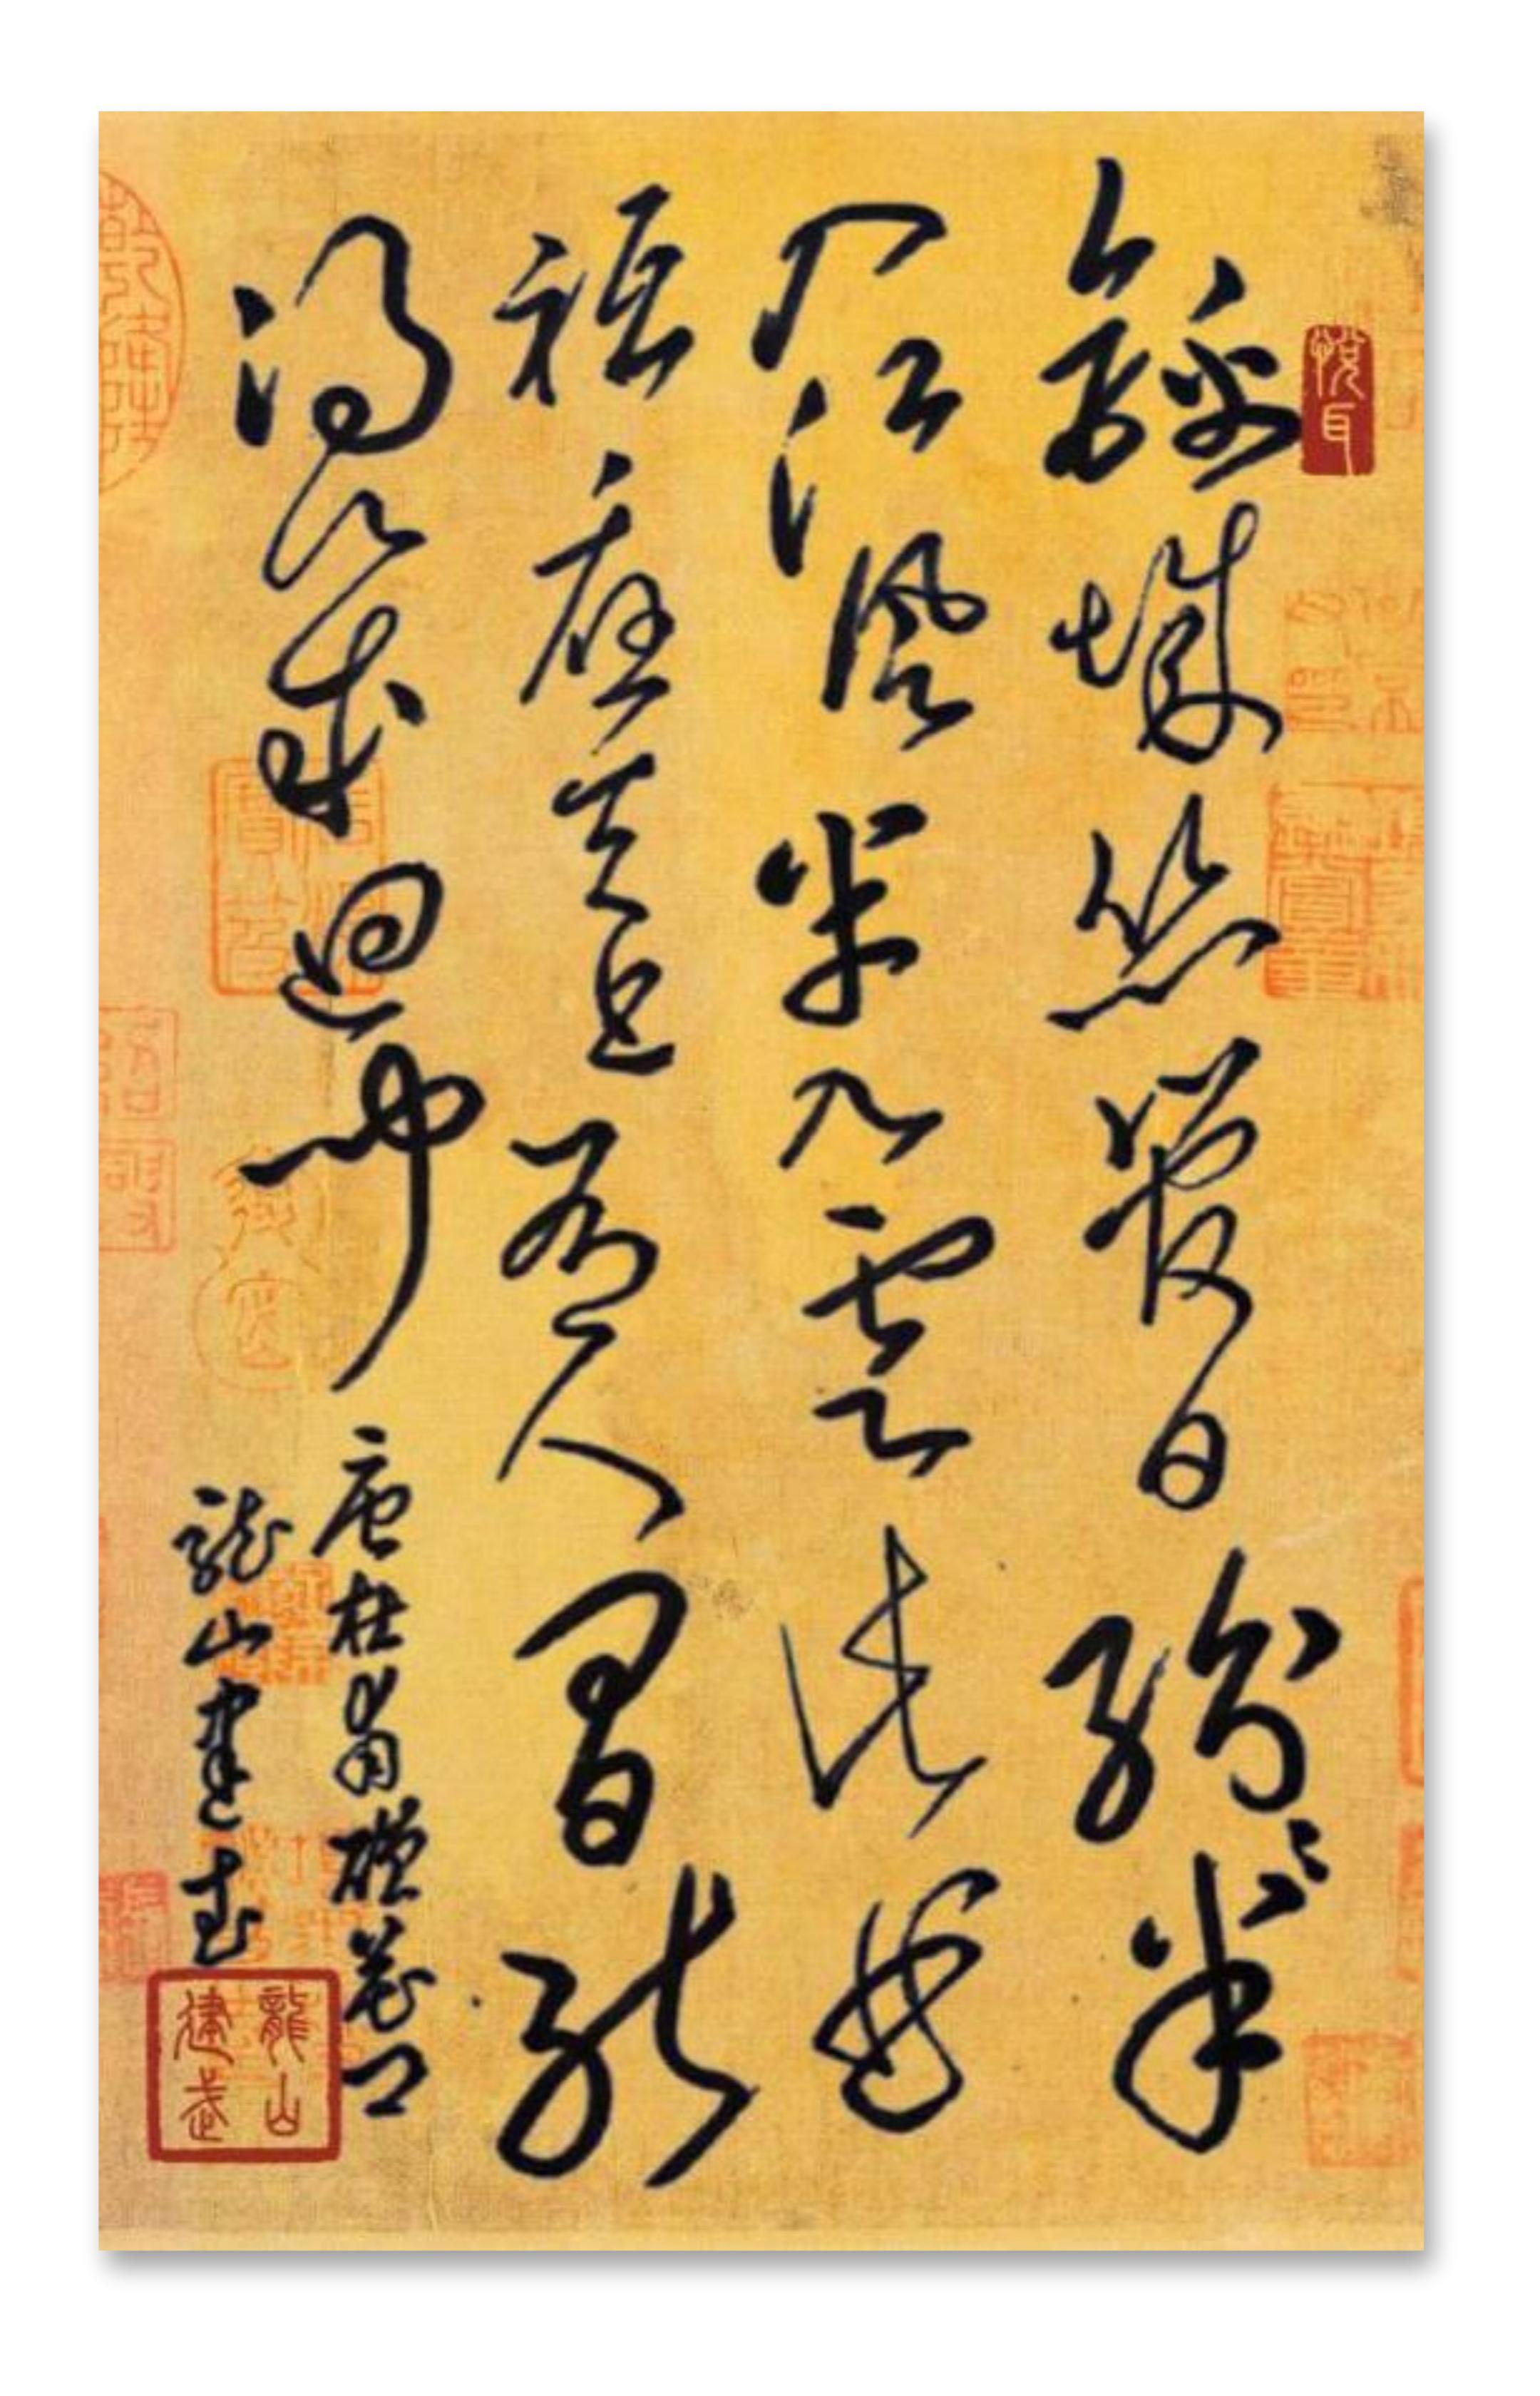 錦城絲管日紛〻半
入江風半入雲此曲
祇應天上有人間能
得幾迴聞
唐杜甫贈花卿
龍山建武
龍山建武